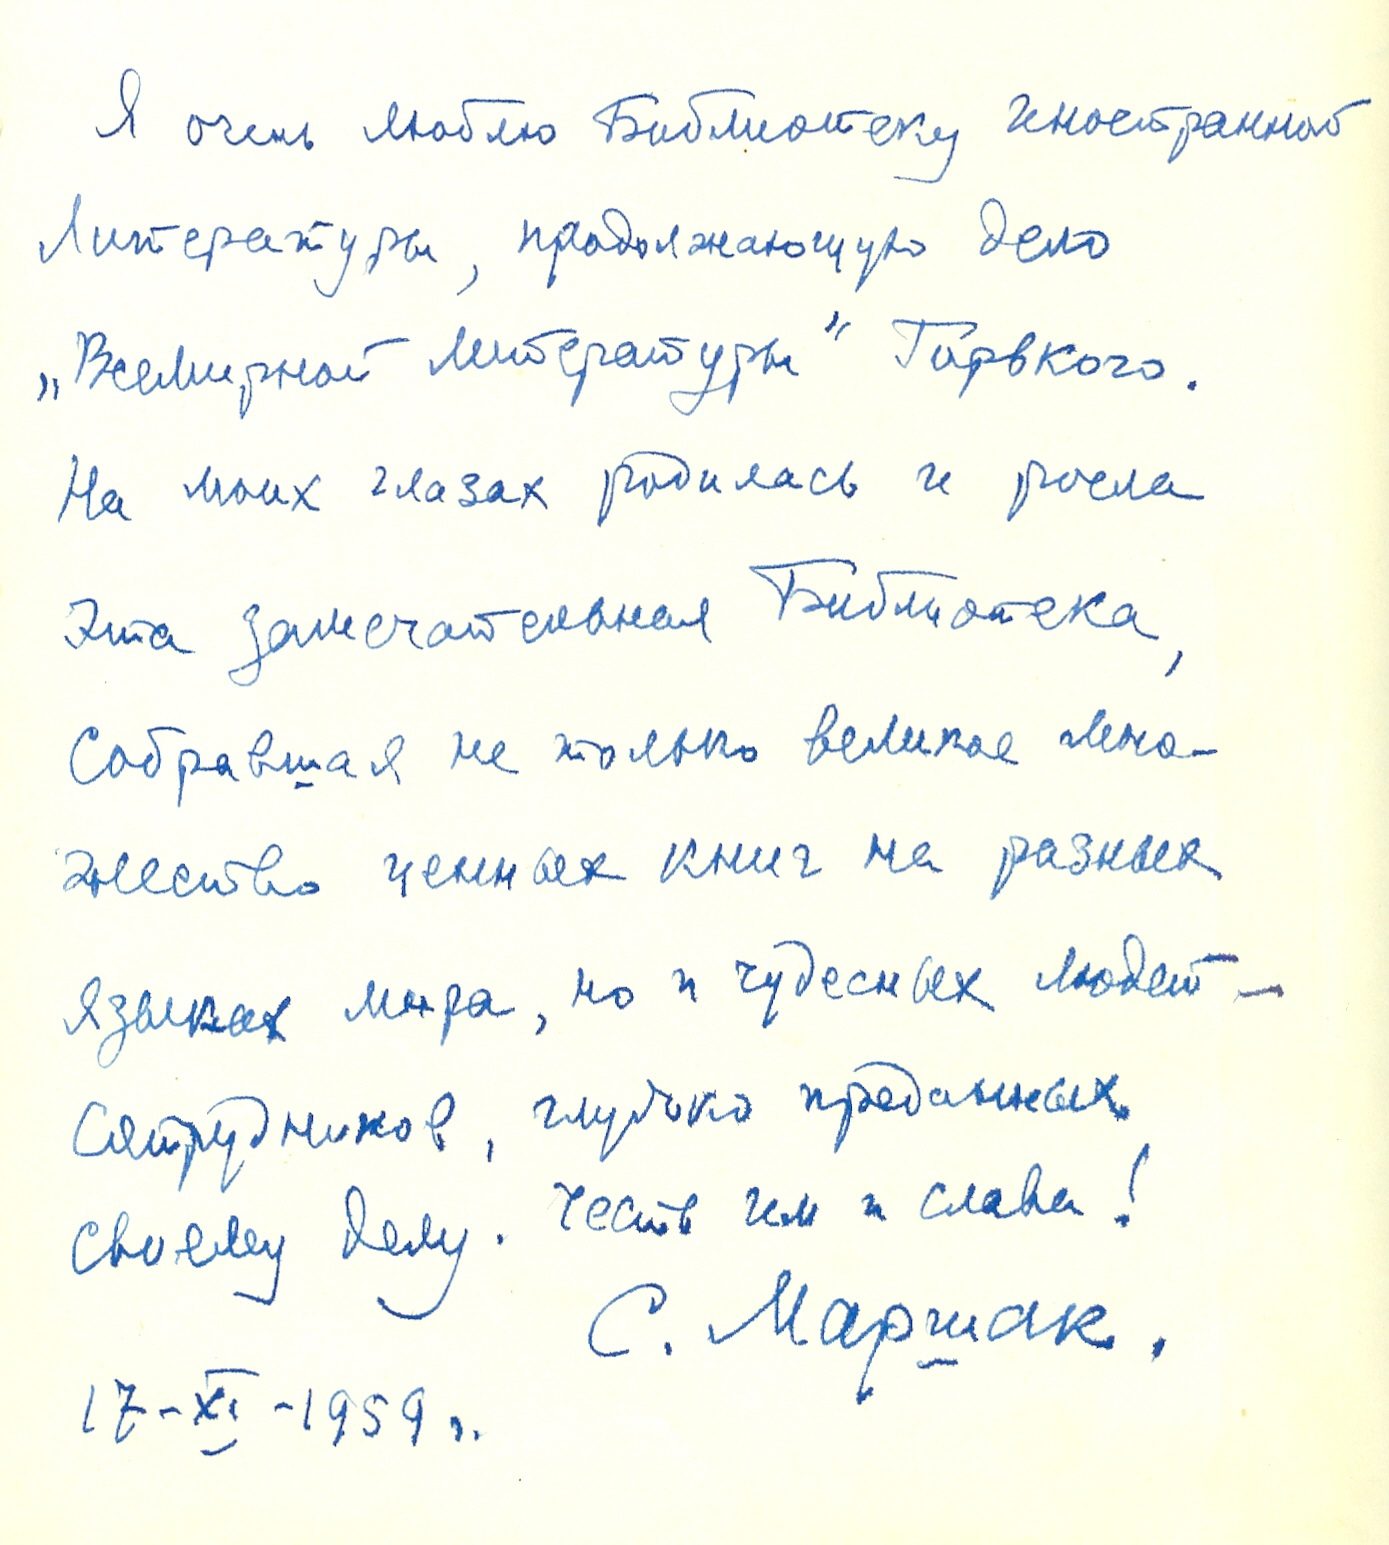 Я очень люблю Библиотеку иностранной
Литературы, продолжающую дело
„Всемирной литературы" Горького.
На моих глазах родилась и росла
эта замечательная Библиотека,
собравшая не только великое мно-
жество ценных книг на разных
языках мира, но и чудесных людей —
сотрудников, глубоко преданных
своему делу. Честь им и слава!
С. Маршак.
17-XI-1959 г.